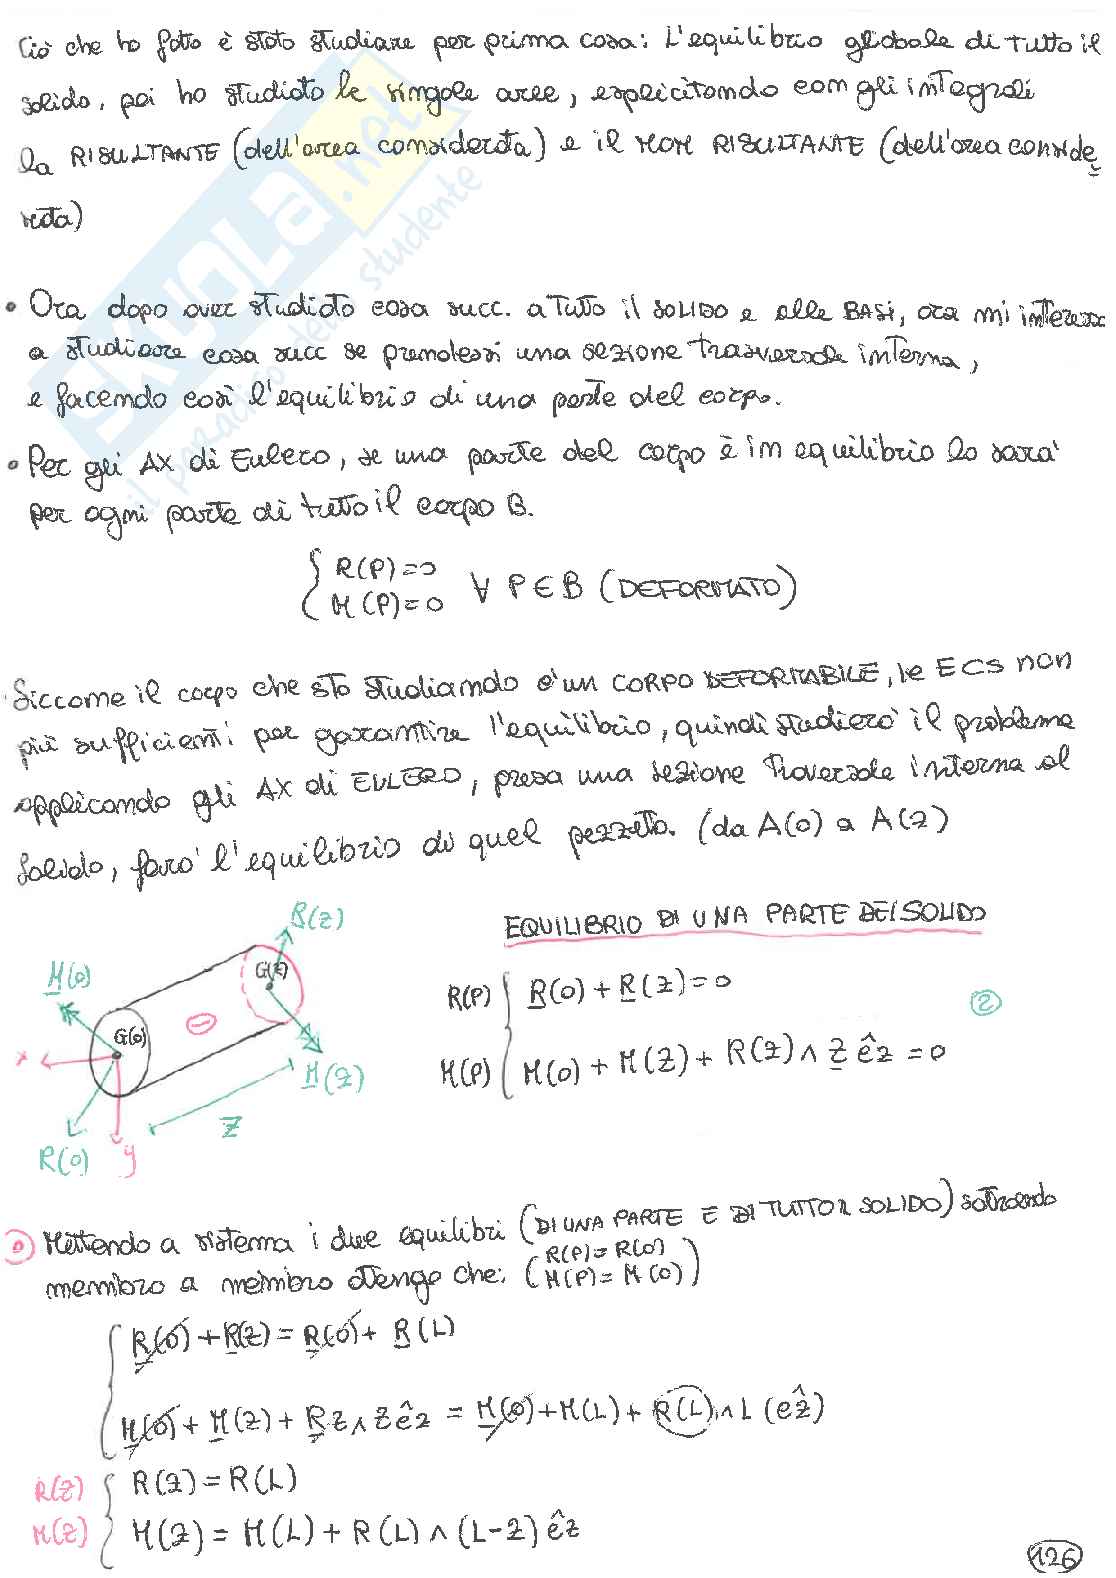 Ciò che ho fatto è stato studiare per prima cosa: L'equilibrio globale di tutto il
solido, poi ho studiato le singole aree, esplicitando con gli integrali
la RISULTANTE (dell'area considerata) e il MOM RISULTANTE (dell'area conside
rata)
• Ora dopo aver studiato cosa succ. a tutto il SOLIDO e alle BASI, ora mi interessa
a studiare cosa succ se prendessi una sezione trasversale interna,
e facendo così l'equilibrio di una parte del corpo.
• Per gli AX di Eulero, se una parte del corpo è in equilibrio lo sarà
per ogni parte di tutto il corpo B.
{ R(P)=0
M(P)=0 ∀ P∈B (DEFORMATO)
Siccome il corpo che sto studiando è un CORPO DEFORMABILE, le ECS non
più sufficienti per garantire l'equilibrio, quindi studierò il problema
applicando gli AX di EULERO, presa una sezione Traversale interna al
solido, farò l'equilibrio di quel pezzetto. (da A(0) a A(z)
EQUILIBRIO DI UNA PARTE DEL SOLIDO
R(z)
M(0)
G(z)
G(0)
x
M(z)
z
R(0)
y
R(P) { R(0) + R(z) = 0
②
M(P) M(0) + M(z) + R(z) ∧ z êz = 0
Mettendo a sistema i due equilibri (DI UNA PARTE E DI TUTTO IL SOLIDO) sottraendo
membro a membro ottengo che: (R(P) = R(0)
M(P) = M(0))
{ R(0) + R(z) = R(0) + R(L)
M(0) + M(z) + Rz ∧ z êz = M(0) + M(L) + R(L) ∧ L (êz)
R(z) { R(z) = R(L)
M(z) M(z) = M(L) + R(L) ∧ (L-z) êz
126
SKUOLA.net
il paradiso dello studente